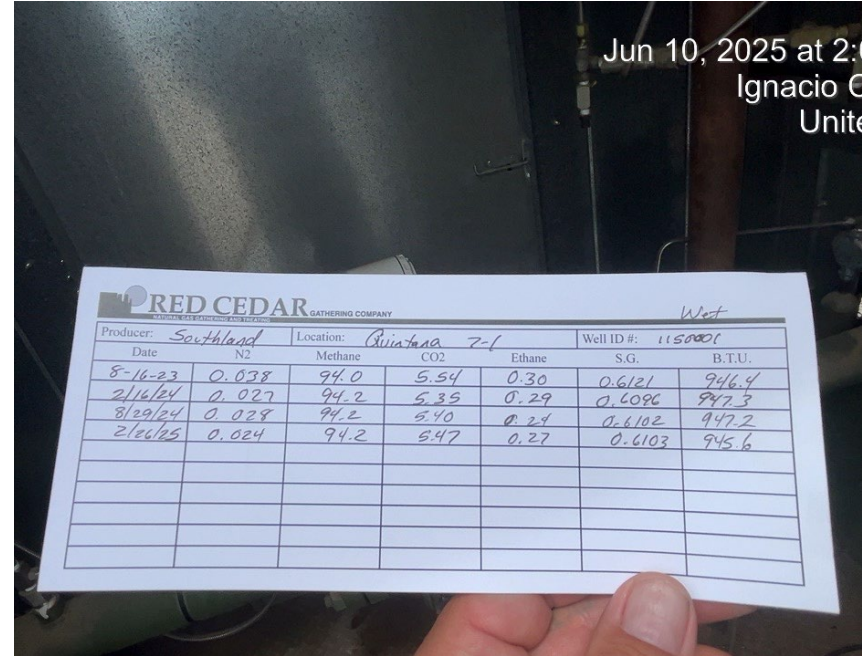 Jun 10, 2025 at 2:0
Ignacio C
Unite
RED CEDAR GATHERING COMPANY
NATURAL GAS GATHERING AND TREATING
Wet
Producer: Southland Location: Quintana 7-1 Well ID #: 1150001
Date N2 Methane CO2 Ethane S.G. B.T.U.
8-16-23 0.038 94.0 5.54 0.30 0.6121 946.4
2/16/24 0.027 94.2 5.35 0.29 0.6096 947.3
8/29/24 0.028 94.2 5.40 0.24 0.6102 947.2
2/26/25 0.024 94.2 5.47 0.27 0.6103 945.6